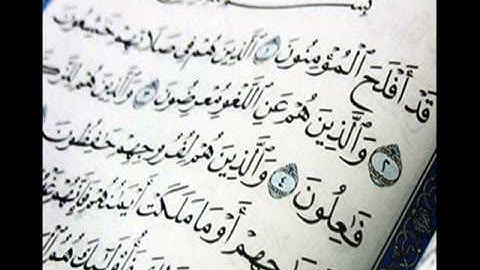 بِسْمِ
قَدْ أَفْلَحَ ٱلْمُؤْمِنُونَ ١ ٱلَّذِينَ هُمْ فِى صَلَاتِهِمْ خَٰشِعُونَ
٢ وَٱلَّذِينَ هُمْ عَنِ ٱللَّغْوِ مُعْرِضُونَ ٣ وَٱلَّذِينَ هُمْ
فَٰعِلُونَ ٤ وَٱلَّذِينَ هُمْ لِفُرُوجِهِمْ حَٰفِظُونَ
جِهِمْ أَوْ مَا مَلَكَتْ أَيْمَٰنُهُمْ فَإِنَّهُمْ
فَأُو۟لَٰٓئِكَ هُمُ